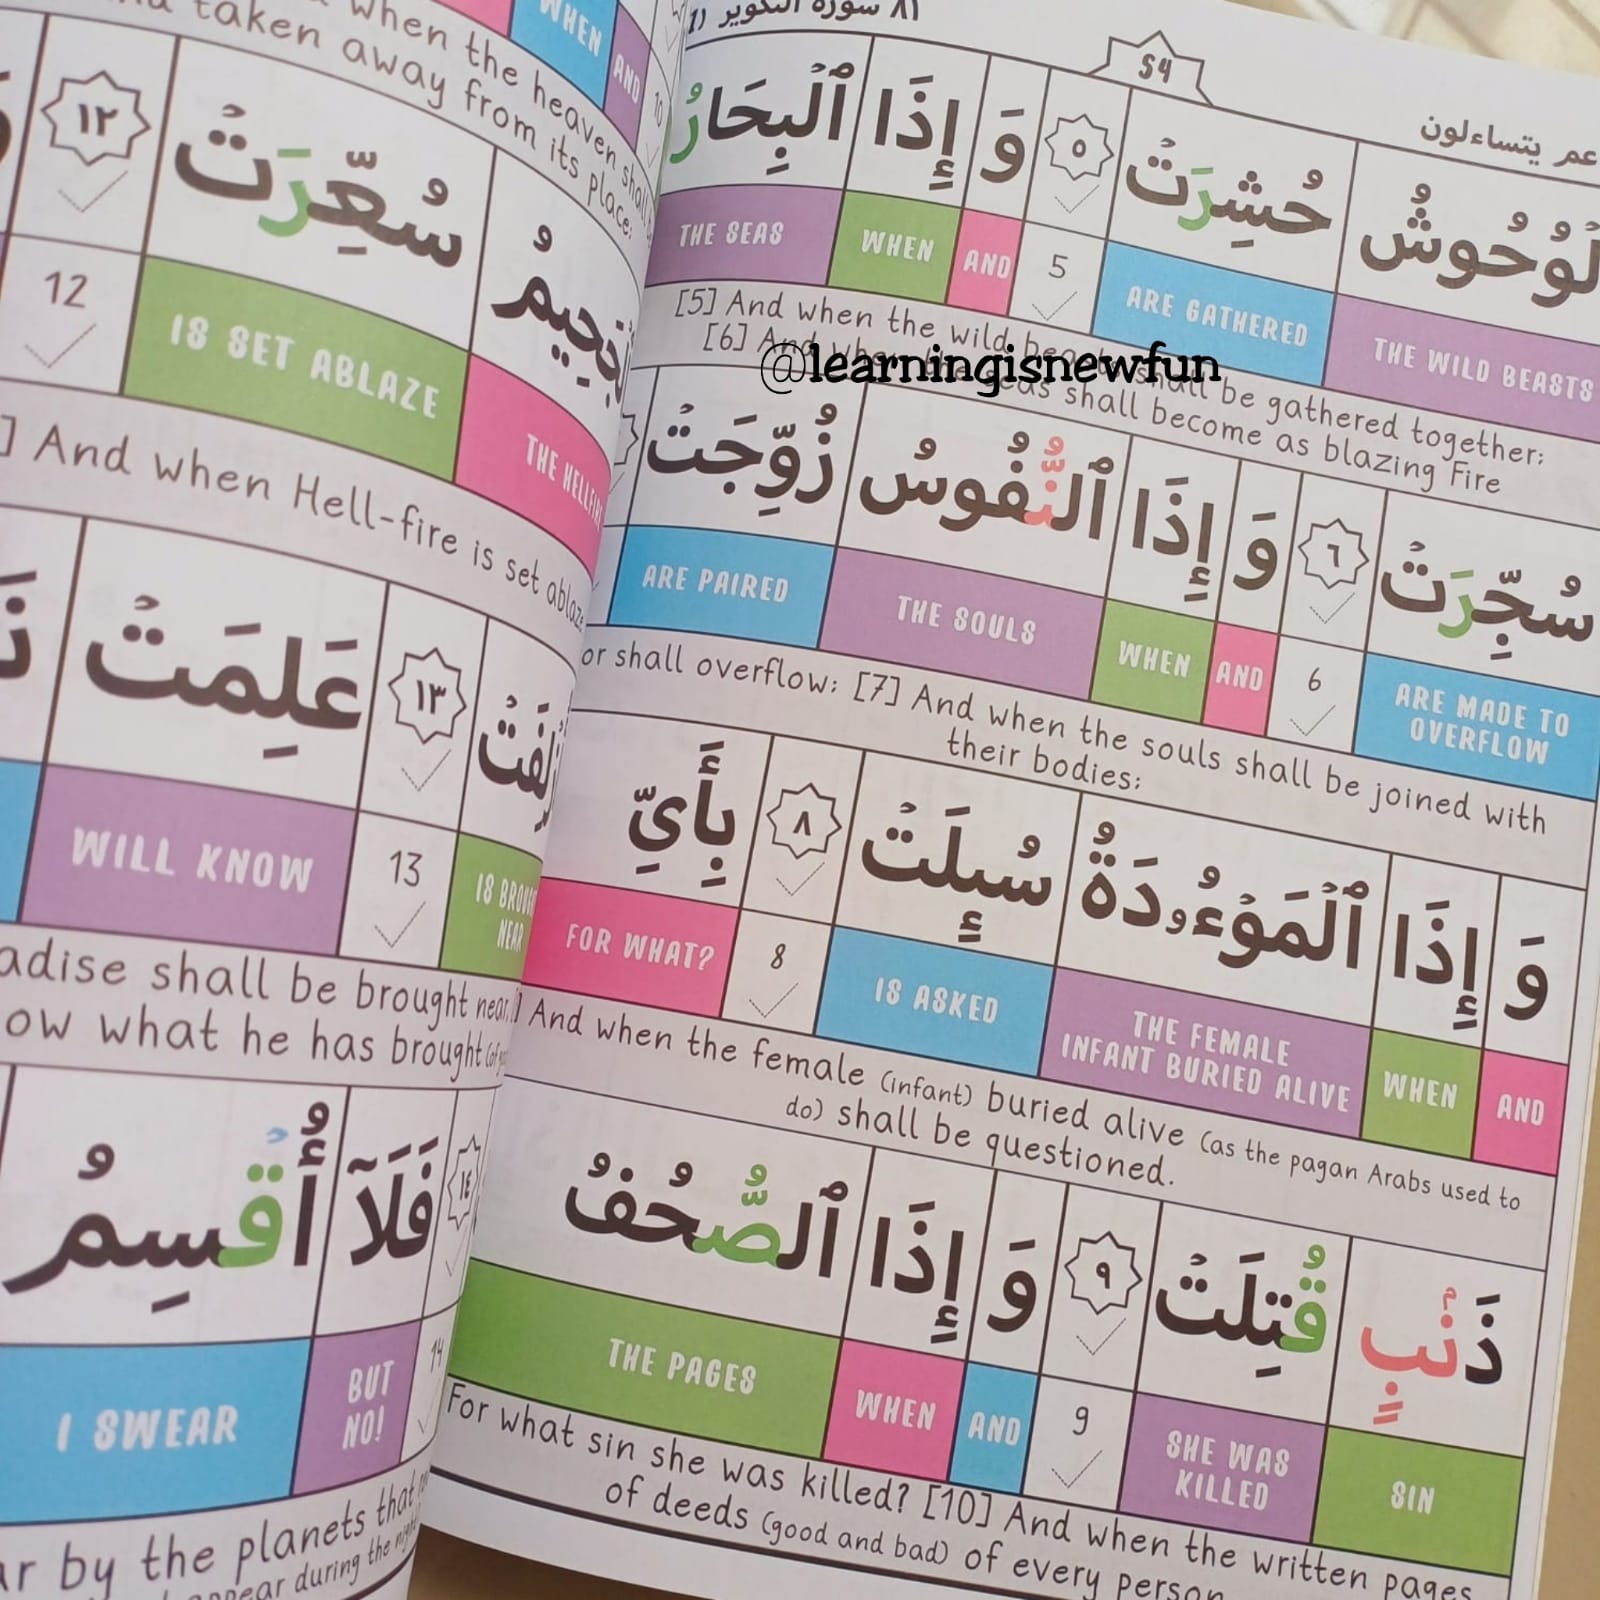 عم يتساءلون
54
٨١ سورة التكوير
حُشِرَتۡ ٥ وَ إِذَا ٱلۡبِحَارُ
THE WILD BEASTS ARE GATHERED 5 AND WHEN THE SEAS
[5] And when the wild beasts shall be gathered together:
[6] And when the seas shall become as blazing Fire
سُجِّرَتۡ ٦ وَ إِذَا ٱلنُّفُوسُ زُوِّجَتۡ
ARE MADE TO OVERFLOW 6 AND WHEN THE SOULS ARE PAIRED
or shall overflow: [7] And when the souls shall be joined with
their bodies;
وَ إِذَا ٱلۡمَوۡءُۥدَةُ سُئِلَتۡ ٨ بِأَيِّ
AND WHEN THE FEMALE INFANT BURIED ALIVE IS ASKED 8 FOR WHAT?
And when the female (infant) buried alive (as the pagan Arabs used to
do) shall be questioned.
ذَنۢبٖ قُتِلَتۡ ٩ وَ إِذَا ٱلصُّحُفُ
SIN SHE WAS KILLED 9 AND WHEN THE PAGES
For what sin she was killed? [10] And when the written pages
of deeds (good and bad) of every person
WHEN AND 10
when the heaven shall
taken away from its place;
سُعِّرَتۡ ١٢
THE HELLFIRE IS SET ABLAZE 12
And when Hell-fire is set ablaze
١٣ عَلِمَتۡ
IS BROUGHT NEAR 13 WILL KNOW
shall be brought near.
what he has brought
١٤ فَلَآ أُقۡسِمُ
14 BUT NO! I SWEAR
by the planets that
appear during the night
@learningisnewfun